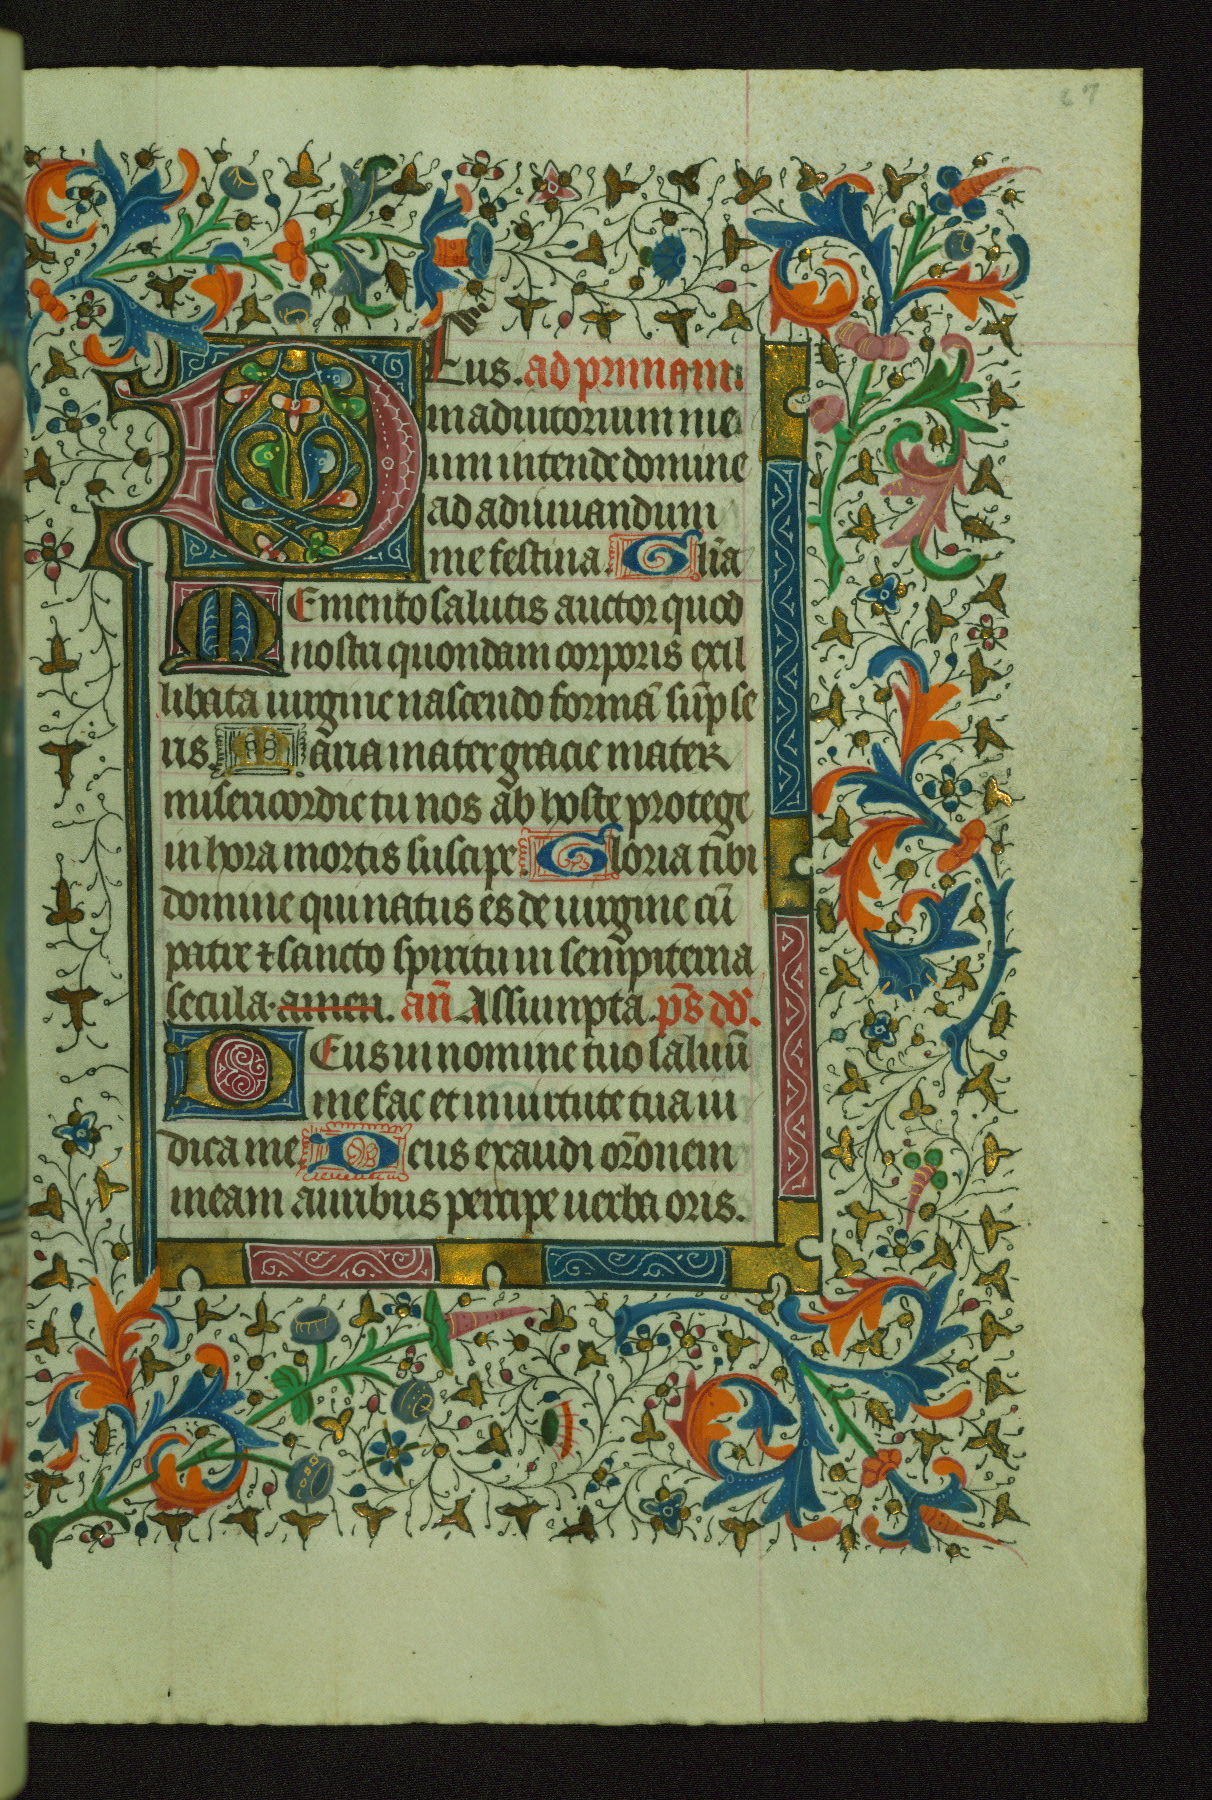 67
Deus. ad primam.
in adiutorium me
um intende domine
ad adiuuandum
me festina. Glīa
Memento salutis auctor quod
nostri quondam corporis ex il
libata uirgine nascendo formā sūpse
ris. Maria mater gracie mater
misericordie tu nos ab hoste protege
in hora mortis suscipe. Gloria tibi
domine qui natus es de uirgine cū
patre ⁊ sancto spiritu in sempiterna
secula. amen. añ Assumpta. ps̄ dd̄.
Deus in nomine tuo saluū
me fac et in uirtute tua iu
dica me Deus exaudi orōnem
meam auribus percipe uerba oris.